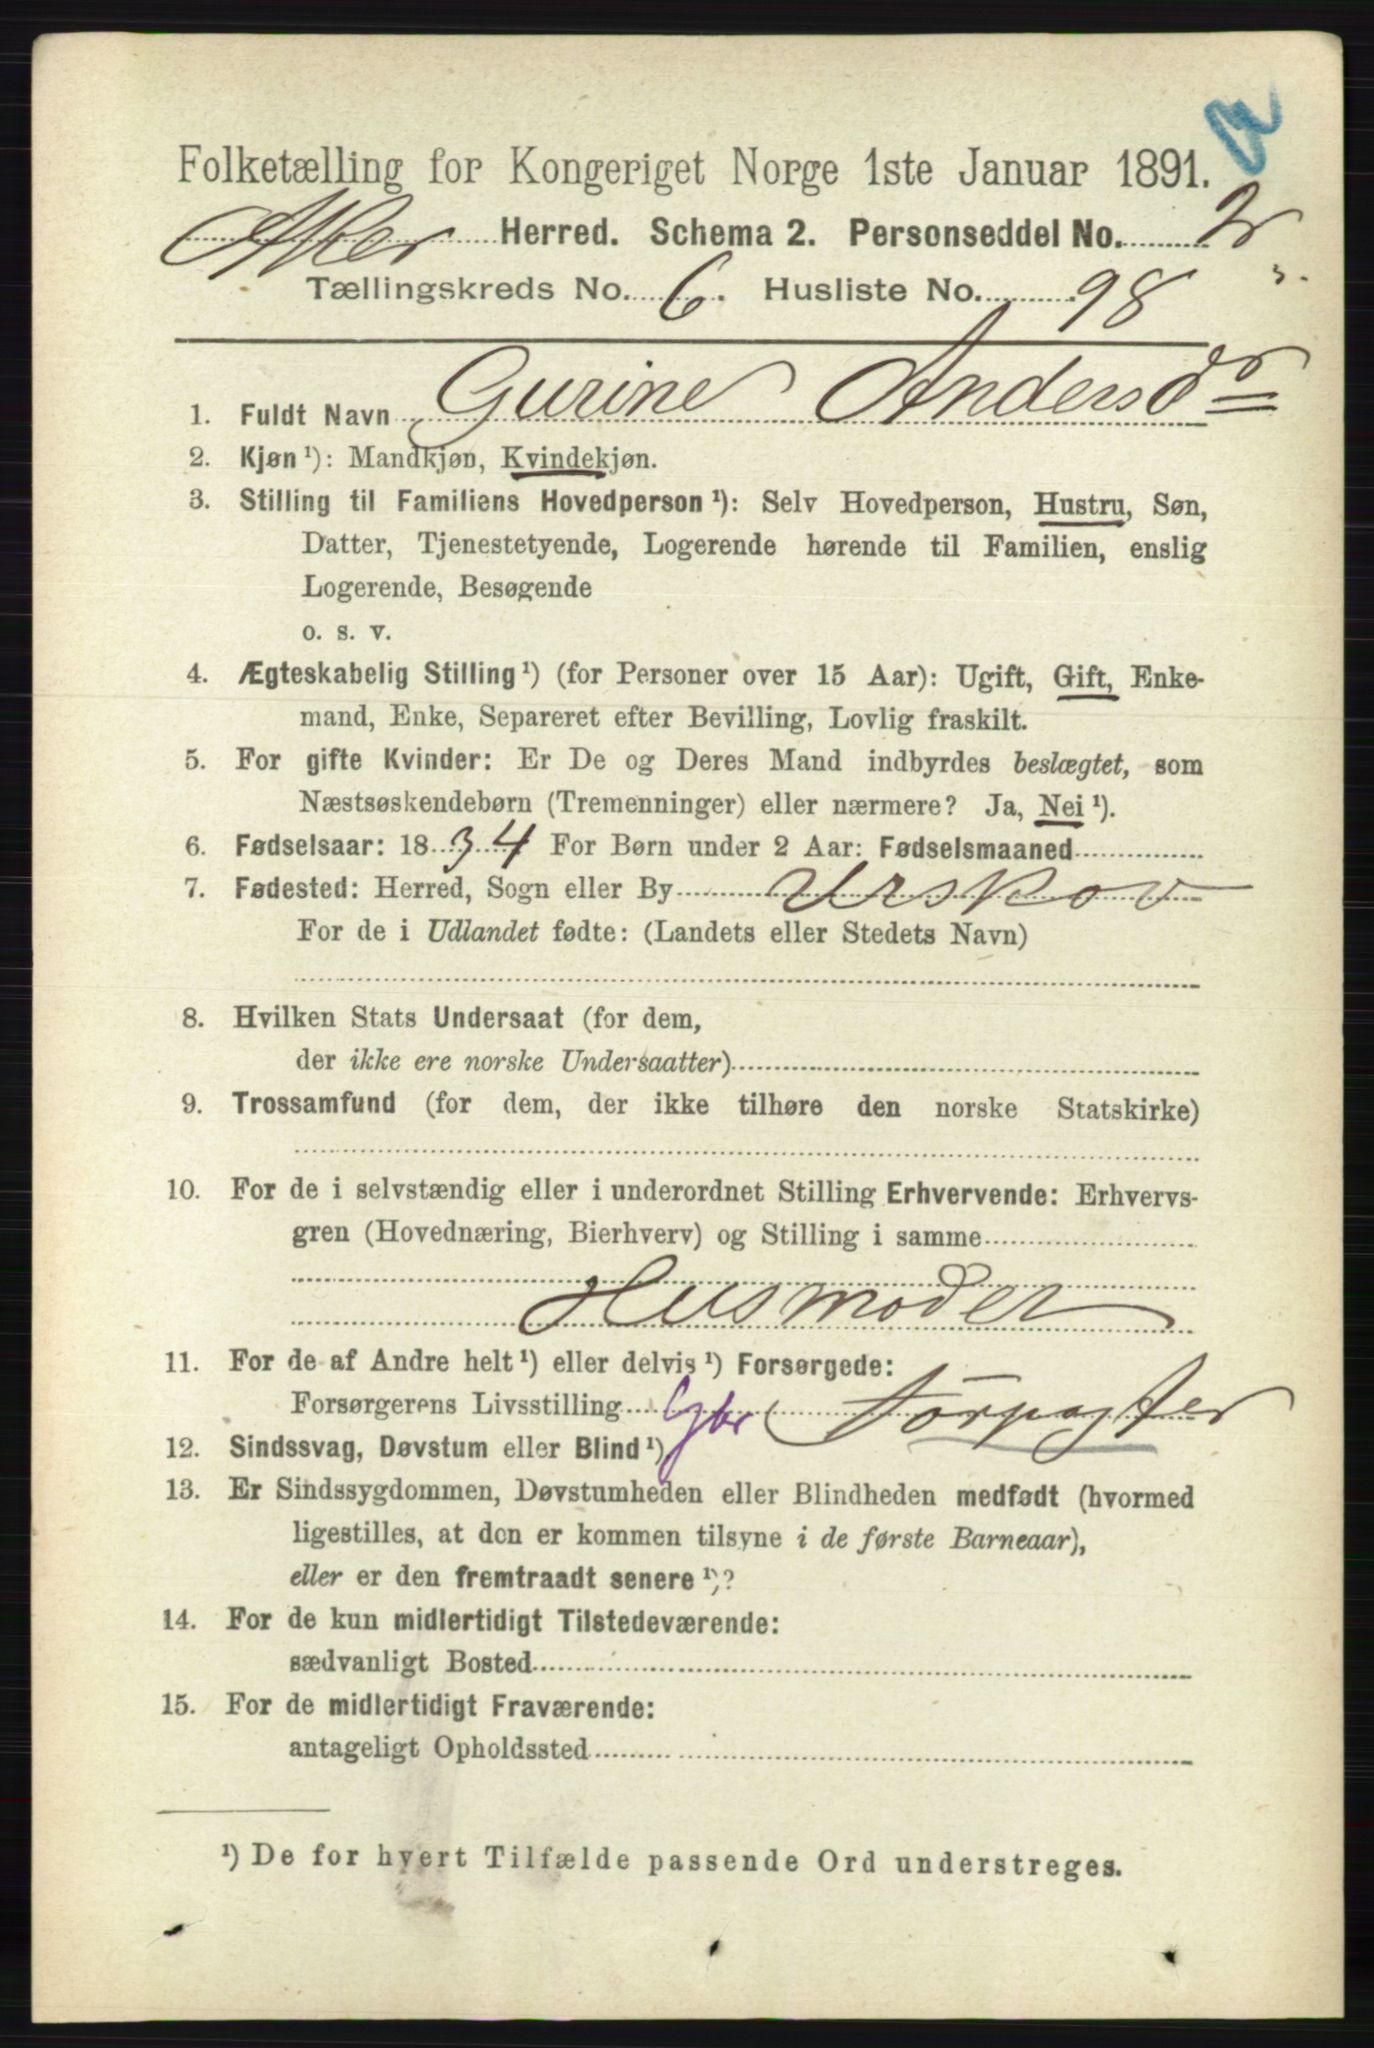 Folketælling for Kongeriget Norge 1ste Januar 1891.
Asker Herred. Schema 2. Personseddel No. 2
Tællingskreds No. 6. Husliste No. 98
1. Fuldt Navn Gurine Andersd
2. Kjøn ¹): Mandkjøn, Kvindekjøn.
3. Stilling til Familiens Hovedperson ¹): Selv Hovedperson, Hustru, Søn,
Datter, Tjenestetyende, Logerende hørende til Familien, enslig
Logerende, Besøgende
o. s. v.
4. Ægteskabelig Stilling ¹) (for Personer over 15 Aar): Ugift, Gift, Enke-
mand, Enke, Separeret efter Bevilling, Lovlig fraskilt.
5. For gifte Kvinder: Er De og Deres Mand indbyrdes beslægtet, som
Næstsøskendebørn (Tremenninger) eller nærmere? Ja, Nei ¹).
6. Fødselsaar: 1834 For Børn under 2 Aar: Fødselsmaaned
7. Fødested: Herred, Sogn eller By Urskov
For de i Udlandet fødte: (Landets eller Stedets Navn)
8. Hvilken Stats Undersaat (for dem,
der ikke ere norske Undersaatter)
9. Trossamfund (for dem, der ikke tilhøre den norske Statskirke)
10. For de i selvstændig eller i underordnet Stilling Erhvervende: Erhvervs-
gren (Hovednæring, Bierhverv) og Stilling i samme
Husmoder
11. For de af Andre helt ¹) eller delvis ¹) Forsørgede:
Forsørgerens Livsstilling Gbr Forpagter
12. Sindssvag, Døvstum eller Blind ¹)
13. Er Sindssygdommen, Døvstumheden eller Blindheden medfødt (hvormed
ligestilles, at den er kommen tilsyne i de første Barneaar),
eller er den fremtraadt senere ¹)?
14. For de kun midlertidigt Tilstedeværende:
sædvanligt Bosted
15. For de midlertidigt Fraværende:
antageligt Opholdssted
¹) De for hvert Tilfælde passende Ord understreges.